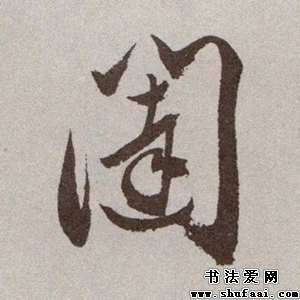 闥
书法爱网
www.shufaai.com